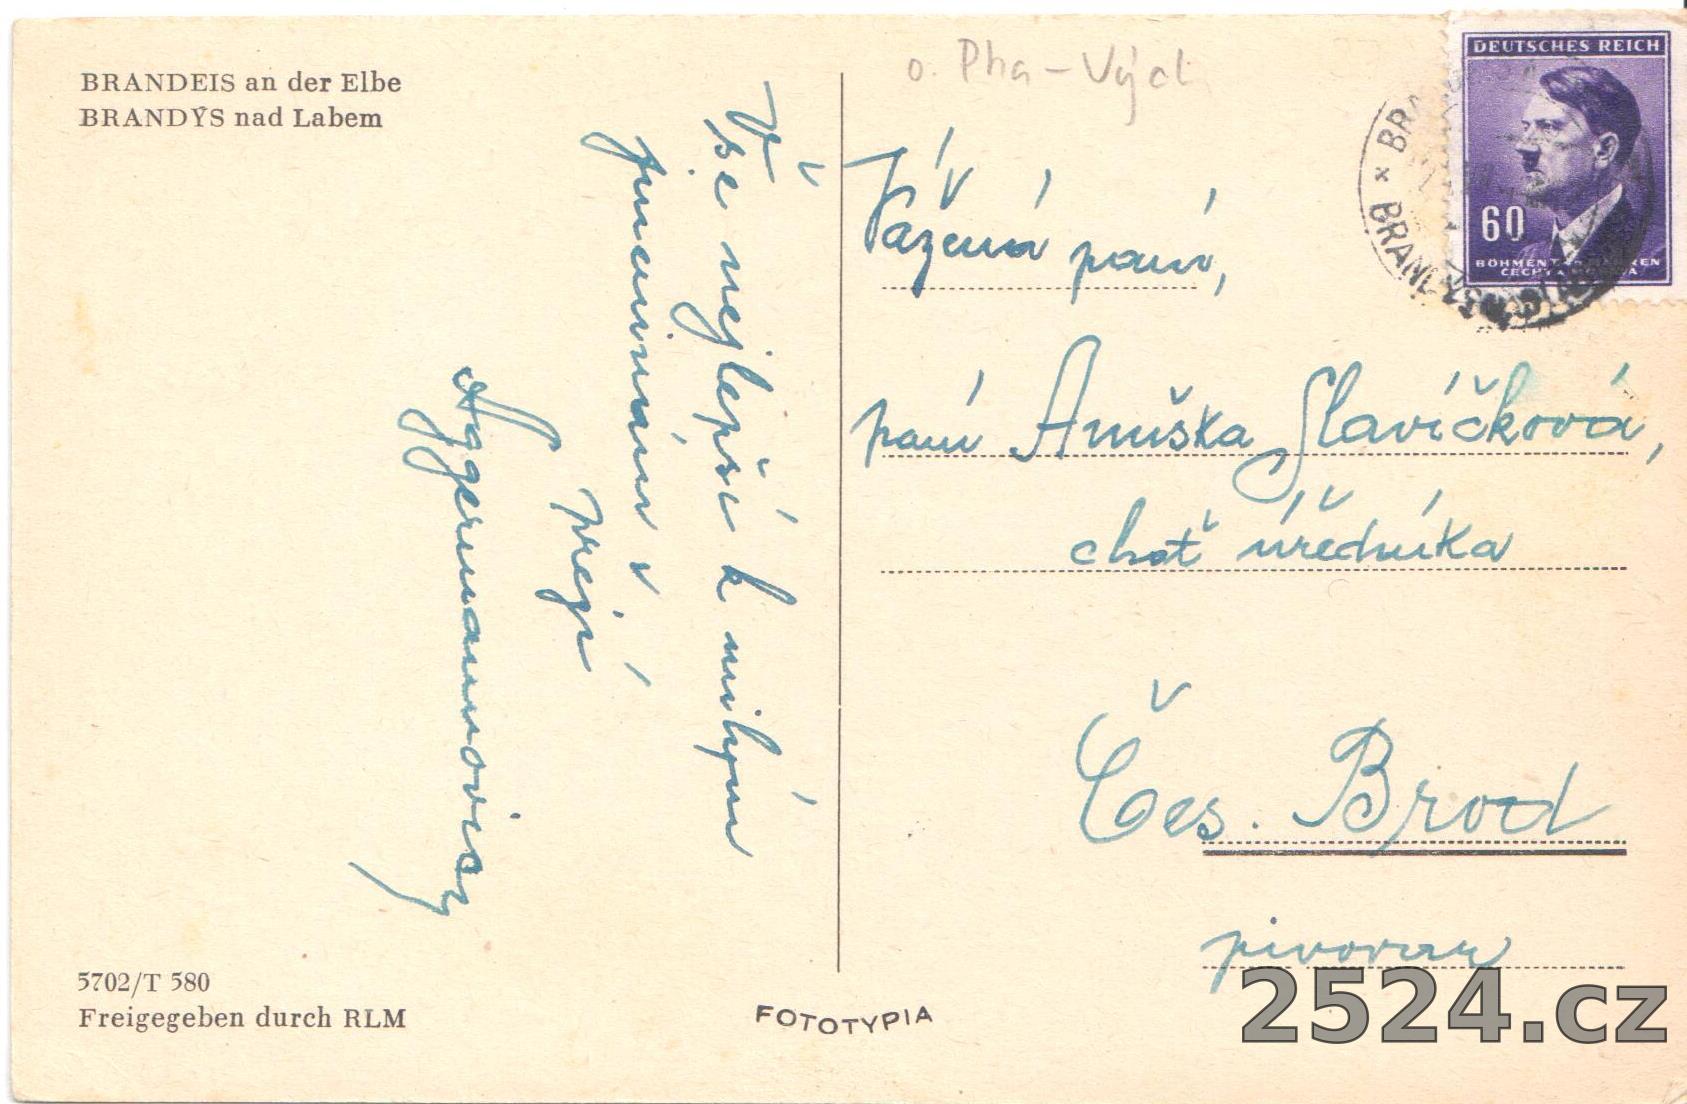 BRANDEIS an der Elbe
BRANDÝS nad Labem
Vše nejlepší k milým
jmeninám v
přeje
Hagermannovi
o. Pha - Vých
DEUTSCHES REICH
60
BÖHMEN
Vážená paní,
paní Anuška Slavíčková,
choť úředníka
Čes. Brod
pivovar
5702/T 580
Freigegeben durch RLM
FOTOTYPIA
2524.cz